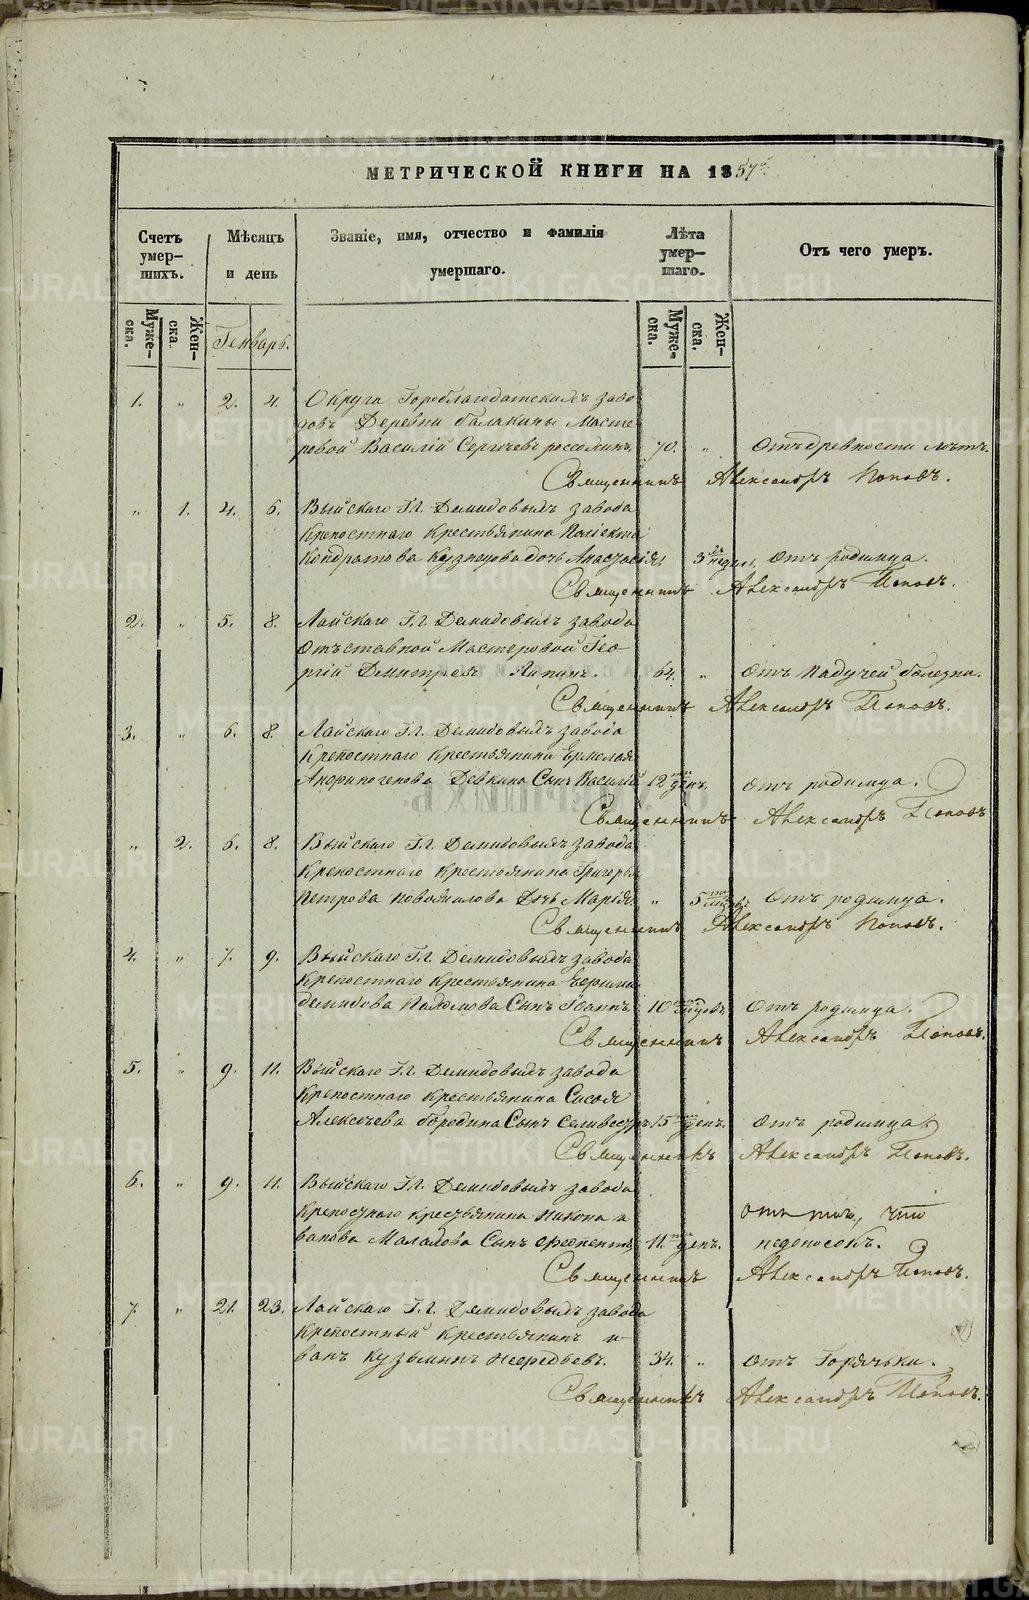 МЕТРИЧЕСКОЙ КНИГИ НА 1857 г.
Счетъ умер-шихъ.
Мѣсяцъ и день
Званіе, имя, отчество и фамилія умершаго.
Лѣта умер-шаго.
Отъ чего умеръ.
Муже-ска. Жен-ска. Генварь. Муже-ска. Жен-ска.
1. " 2. 4. Округа Гороблагодатскихъ заво
довъ Деревни Балакины Масте
ровой Василій Сергѣевъ 70. " Отъ древности лѣтъ.
Священникъ Александръ Поповъ.
" 1. 4. 6. Выйскаго Г.г. Демидовыхъ завода
Крепостнаго Крестьянина
Кондратова Кузнецова дочь Анастасія, 3 недел. Отъ родимца.
Священникъ Александръ Поповъ.
2. " 5. 8. Лайскаго Г.г. Демидовыхъ завода
Отъставной Мастеровой Гео
ргій Димитріевъ Ляпинъ. 64. " Отъ Падучей болезни.
Священникъ Александръ Поповъ.
3. " 6. 8. Лайскаго Г.г. Демидовыхъ завода
Крепостнаго Крестьянина Ермолая
Анфиногенова Девкина Сынъ Василій 12 ден. Отъ родимца.
Священникъ Александръ Поповъ
" 2. 6. 8. Выйскаго Г.г. Демидовыхъ завода
Крепостнаго Крестьянина Григорья
Петрова Дочь Марія " 5 Отъ родимца.
Священникъ Александръ Поповъ.
4. " 7. 9. Выйскаго Г.г. Демидовыхъ завода
Крепостнаго Крестьянина
Демидова Сынъ Іоаннъ 10 Отъ родимца.
Священникъ Александръ Поповъ.
5. " 9. 11. Выйскаго Г.г. Демидовыхъ завода
Крепостнаго Крестьянина Сысоя
Алексѣева Бородина Сынъ Селивестръ 15 ден. Отъ родимца.
Священникъ Александръ Поповъ.
6. " 9. 11. Выйскаго Г.г. Демидовыхъ завода
Крепостнаго Крестьянина Никона и Отъ того, что
ванова Малахова Сынъ 11. ден. недоносокъ.
Священникъ Александръ Поповъ.
7. " 21. 23. Лайскаго Г.г. Демидовыхъ завода
Крепостный Крестьянинъ и
ванъ Кузьминъ 34. " Отъ Горячьки.
Священникъ Александръ Поповъ.
METRIKI.GASO-URAL.RU